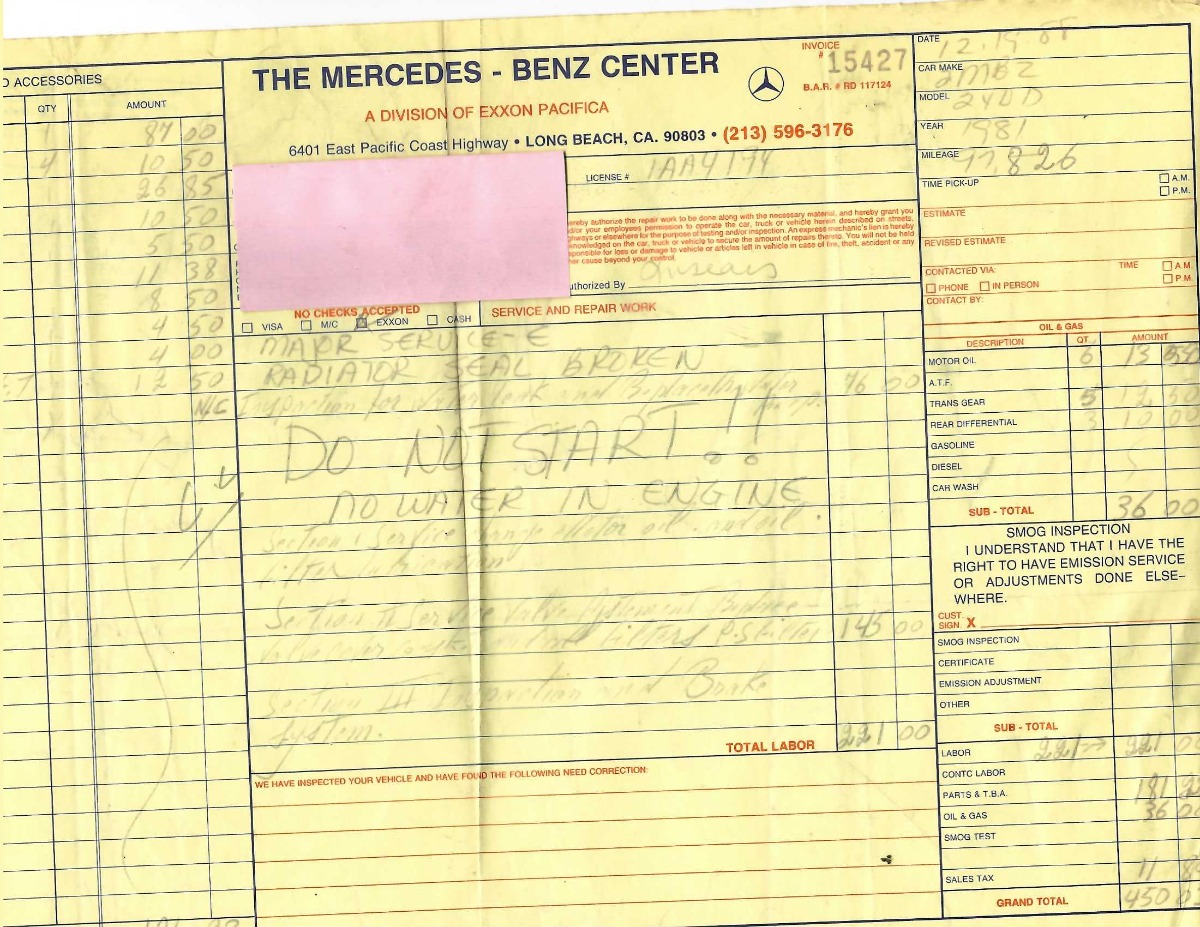 O ACCESSORIES
QTY AMOUNT
1 87 00
4 10 50
26 85
10 50
50
11 38
8 50
4 50
4 00
12 50
N/C
THE MERCEDES - BENZ CENTER
A DIVISION OF EXXON PACIFICA
6401 East Pacific Coast Highway • LONG BEACH, CA. 90803 • (213) 596-3176
INVOICE
# 15427
B.A.R. # RD 117124
LICENSE # 1AA4174
hereby authorize the repair work to be done along with the necessary material, and hereby grant you
and/or your employees permission to operate the car, truck or vehicle herein described on streets,
highways or elsewhere for the purpose of testing and/or inspection. An express mechanic's lien is hereby
acknowledged on the car, truck or vehicle to secure the amount of repairs thereto. You will not be held
responsible for loss or damage to vehicle or articles left in vehicle in case of fire, theft, accident or any
other cause beyond your control.
uthorized By
NO CHECKS ACCEPTED
VISA M/C EXXON CASH
SERVICE AND REPAIR WORK
MAJOR SERVICE-E
RADIATOR SEAL BROKEN
Inspection for water leak and 76 00
DO NOT START !!
NO WATER IN ENGINE
Section Service change Motor oil and oil
filter
Section II Service Valve
filters 145 00
Section III Inspection and Brake
System.
TOTAL LABOR 221 00
WE HAVE INSPECTED YOUR VEHICLE AND HAVE FOUND THE FOLLOWING NEED CORRECTION:
DATE
CAR MAKE MBZ
MODEL 240D
YEAR 1981
MILEAGE 97,826
TIME PICK-UP A.M.
P.M.
ESTIMATE
REVISED ESTIMATE
CONTACTED VIA: TIME A.M.
P.M.
PHONE IN PERSON
CONTACT BY:
OIL & GAS
DESCRIPTION QT. AMOUNT
MOTOR OIL 6 13 50
A.T.F.
TRANS GEAR 5 12 50
REAR DIFFERENTIAL 3 10 00
GASOLINE
DIESEL
CAR WASH
SUB - TOTAL 36 00
SMOG INSPECTION
I UNDERSTAND THAT I HAVE THE
RIGHT TO HAVE EMISSION SERVICE
OR ADJUSTMENTS DONE ELSE-
WHERE.
CUST.
SIGN. X
SMOG INSPECTION
CERTIFICATE
EMISSION ADJUSTMENT
OTHER
SUB - TOTAL
LABOR 221 → 221 0
CONTC LABOR
PARTS & T.B.A. 181
OIL & GAS 36 0
SMOG TEST
SALES TAX 11
GRAND TOTAL 450